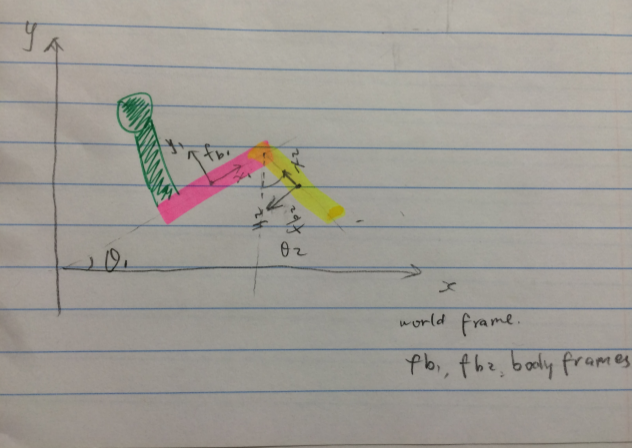 y
y₁ fb₁ x₁ x₂
y₂ fb₂
θ₁ θ₂
x
world frame.
fb₁, fb₂, body frames